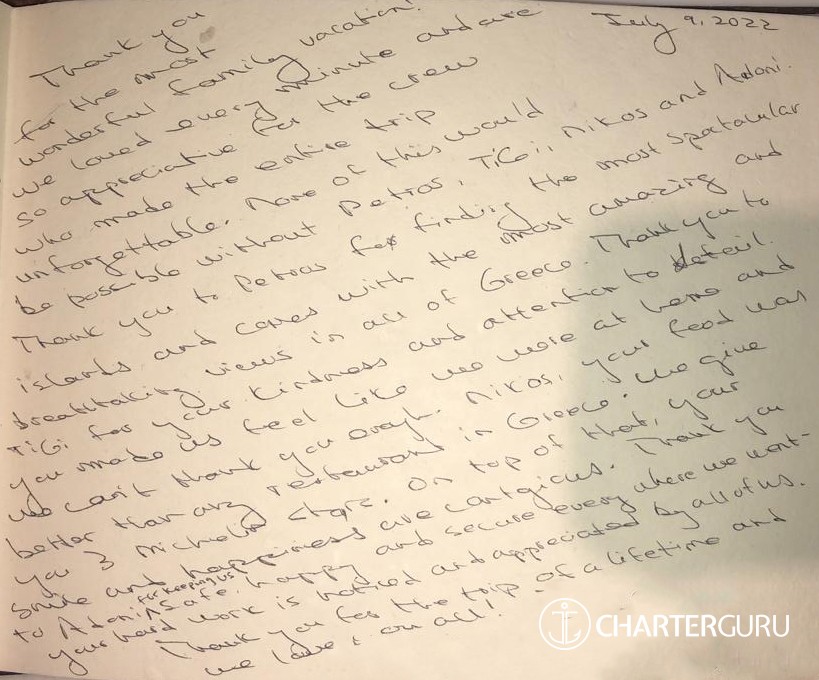 July 9, 2022
Thank you
for the most
wonderful family vacation!
we loved every minute and are
so appreciative for the crew
who made the entire trip
unforgettable. None of this would
be possible without Petros, TiGi, Nikos and Adoni.
Thank you to Petros for finding the most spectacular
islands and coves with the most amazing and
breathtaking views in all of Greece. Thank you to
TiGi for your kindness and attention to detail.
you made us feel like we were at home and
we can't thank you enough. Nikos, your food was
better than any restaurant in Greece. We give
you 3 Michelin stars. On top of that, your
smile and happiness are contagious. Thank you
to Adoni for keeping us safe, happy and secure everywhere we went-
your hard work is noticed and appreciated by all of us.
Thank you for the trip of a lifetime and
we love you all!
CHARTERGURU